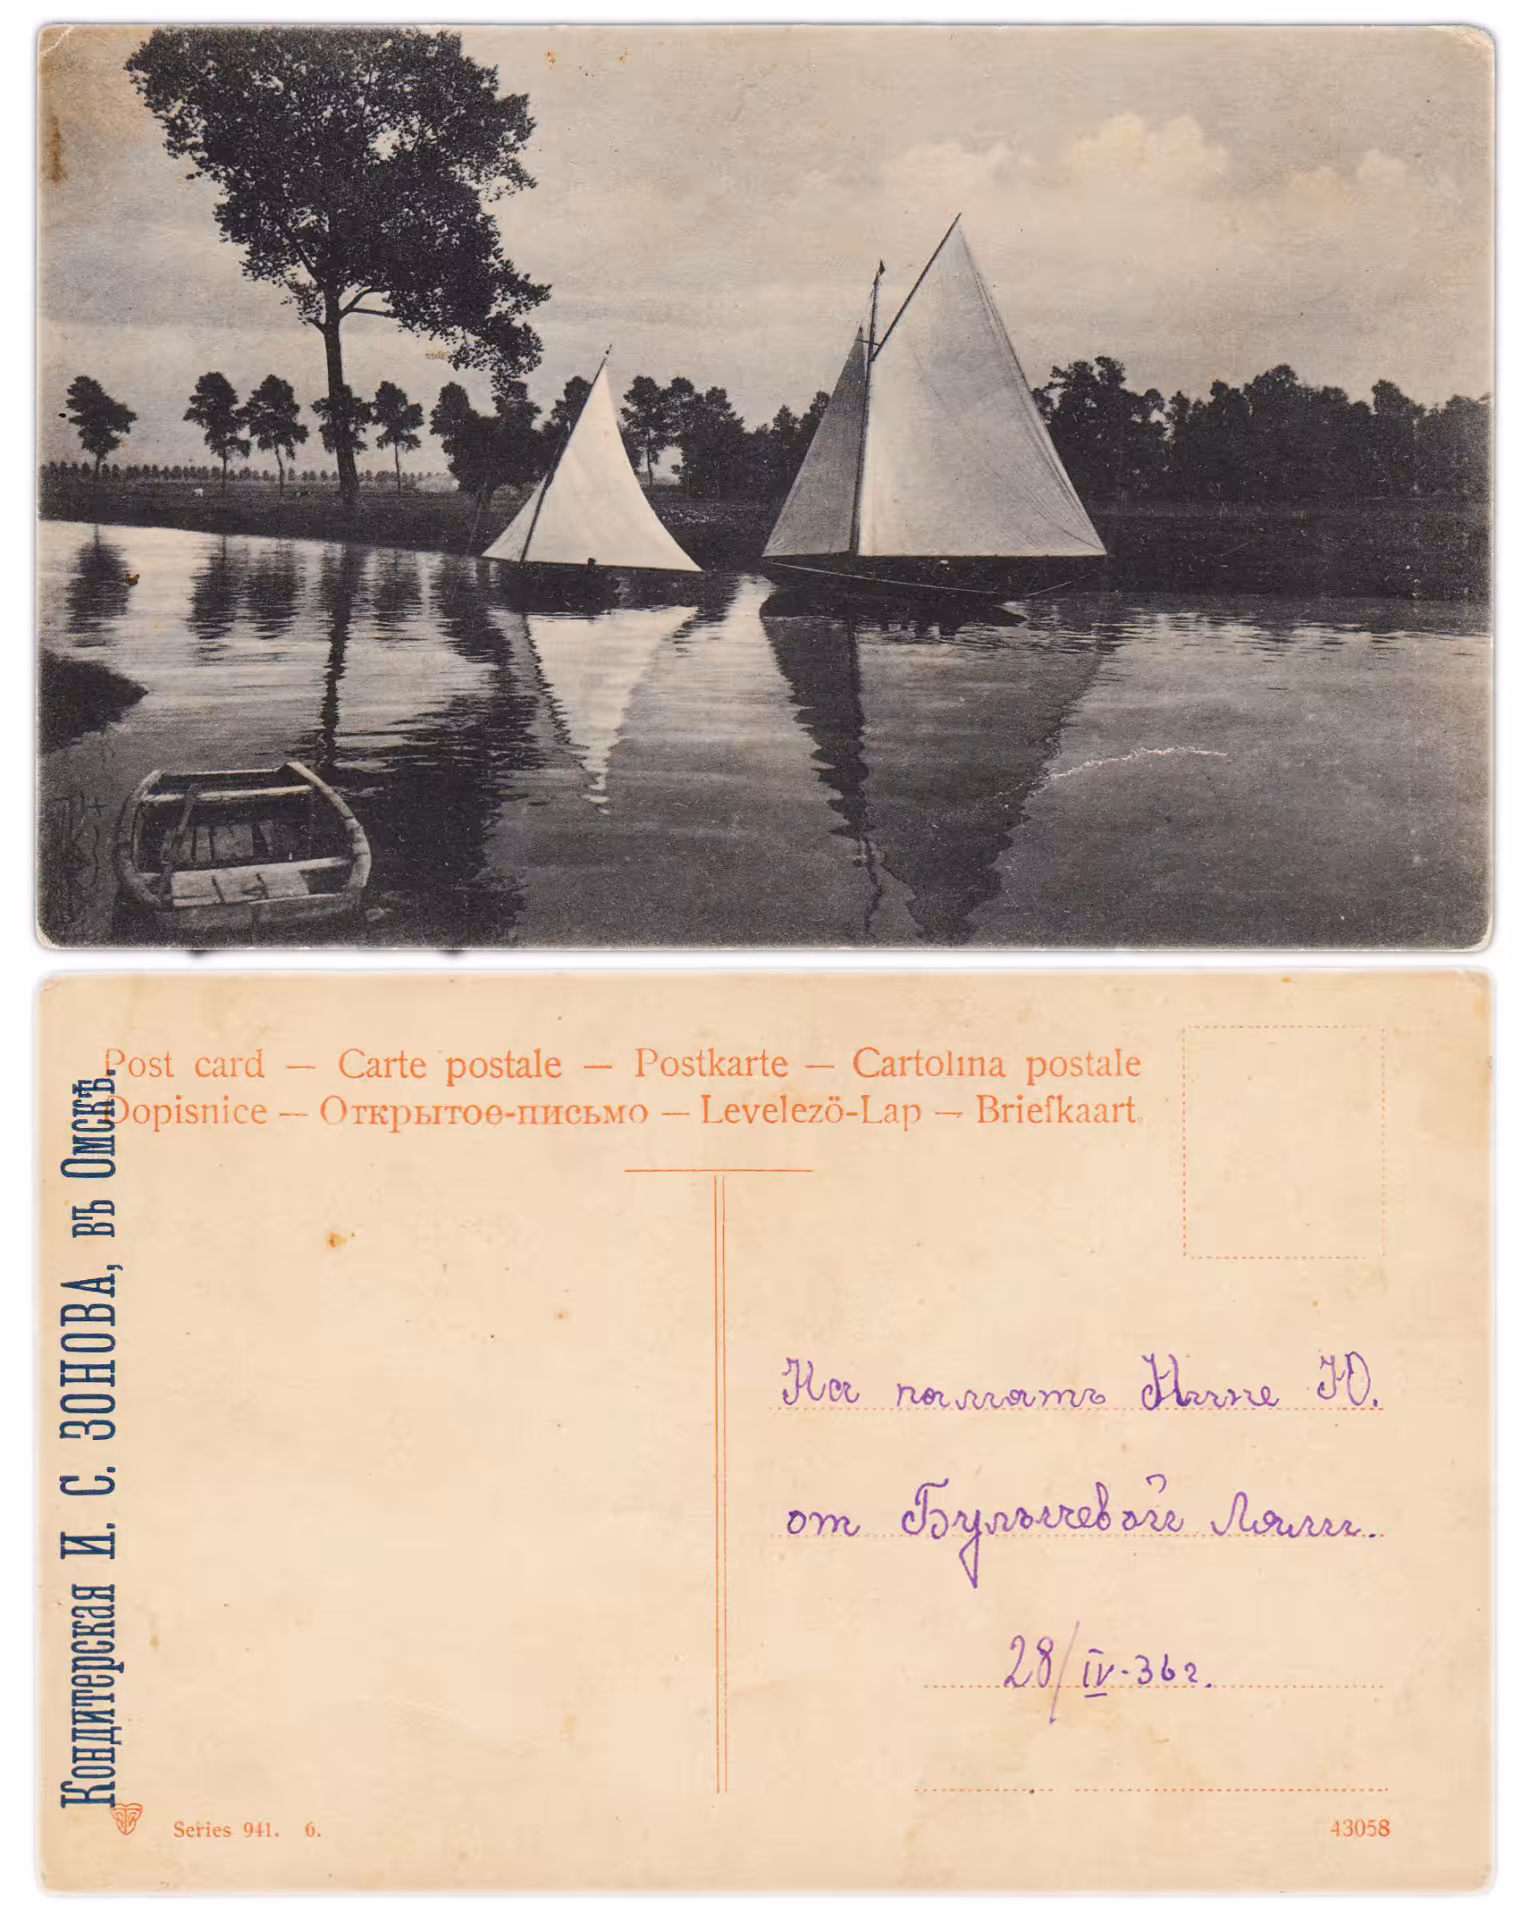 Post card — Carte postale — Postkarte — Cartolina postale
Dopisnice — Открытое-письмо — Levelezö-Lap — Briefkaart
Кондитерская И. С. ЗОНОВА, въ Омскѣ.
На память Нине Ю.
от Булычевой Ляли.
28/IV-36г.
Series 941. 6.
43058